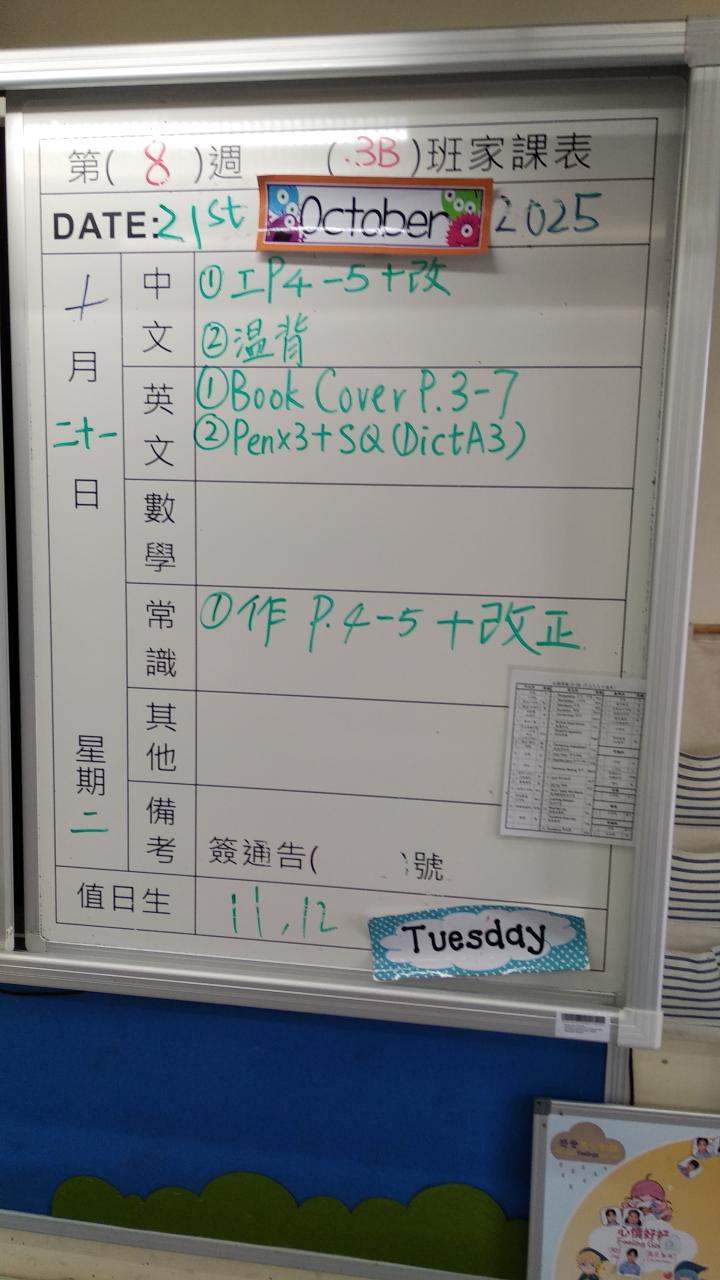 第( 8 )週 ( 3B )班家課表
DATE: 21st October 2025
十月二十一日
星期二
中文
①工P4-5+改
②温背
英文
①Book Cover P.3-7
②Penx3+SQ(DictA3)
數學
常識
①作 P.4-5+改正
其他
備考
簽通告( )號
值日生
11,12
Tuesday
心情好好
Feeling Good